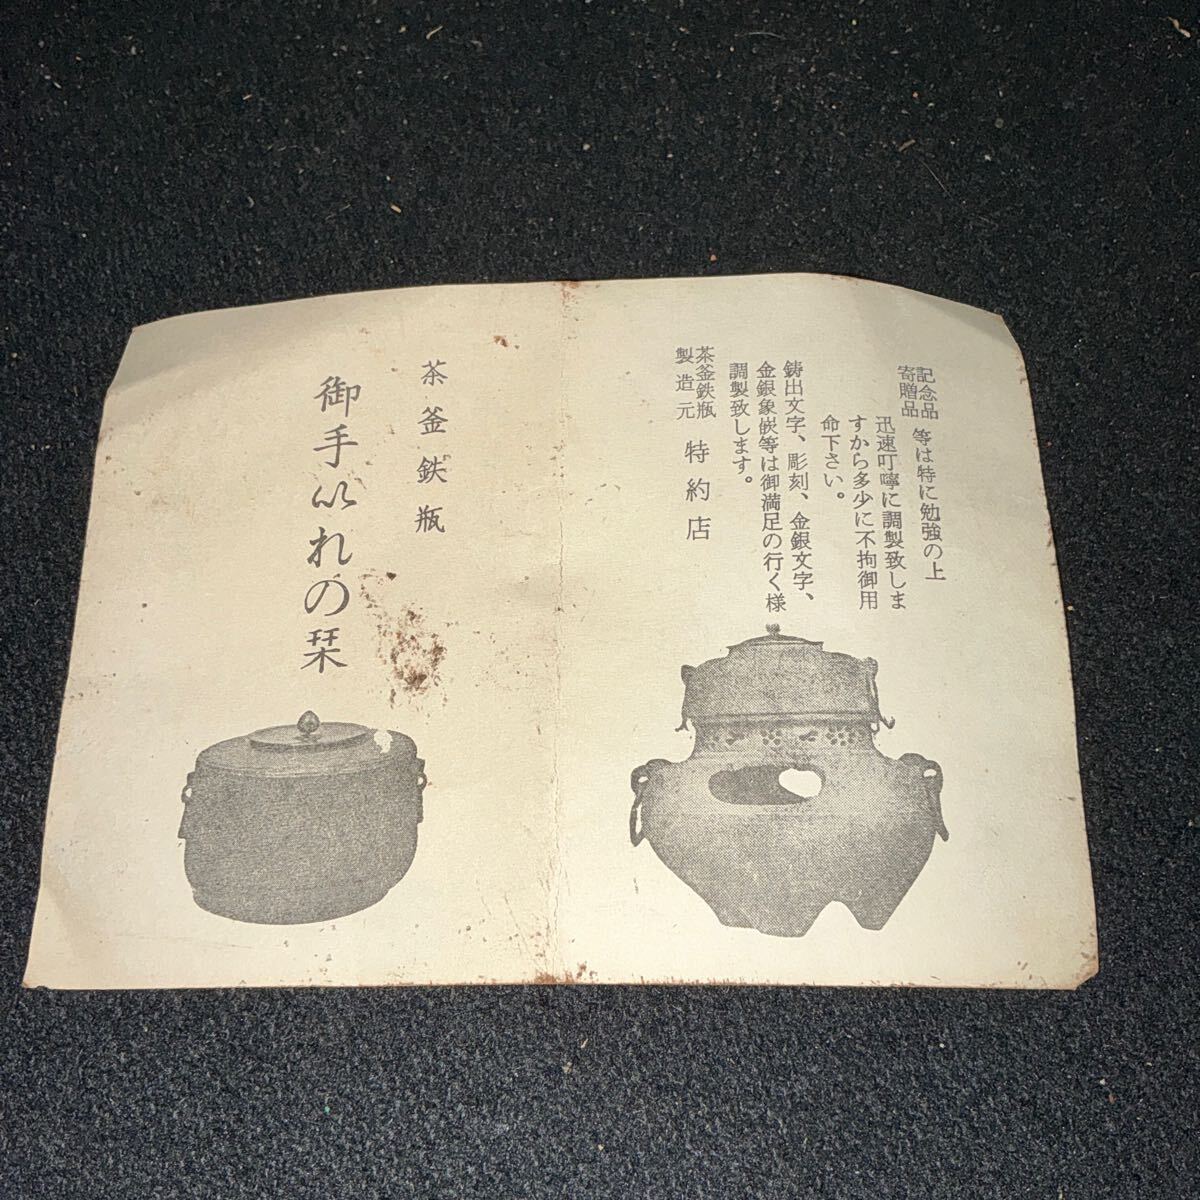 記念品
寄贈品
等は特に勉強の上
迅速叮嚀に調製致しま
すから多少に不拘御用
命下さい。
鋳出文字、彫刻、金銀文字、
金銀象嵌等は御満足の行く様
調製致します。
茶釜鉄瓶
製造元
特約店
茶釜鉄瓶
御手いれの栞